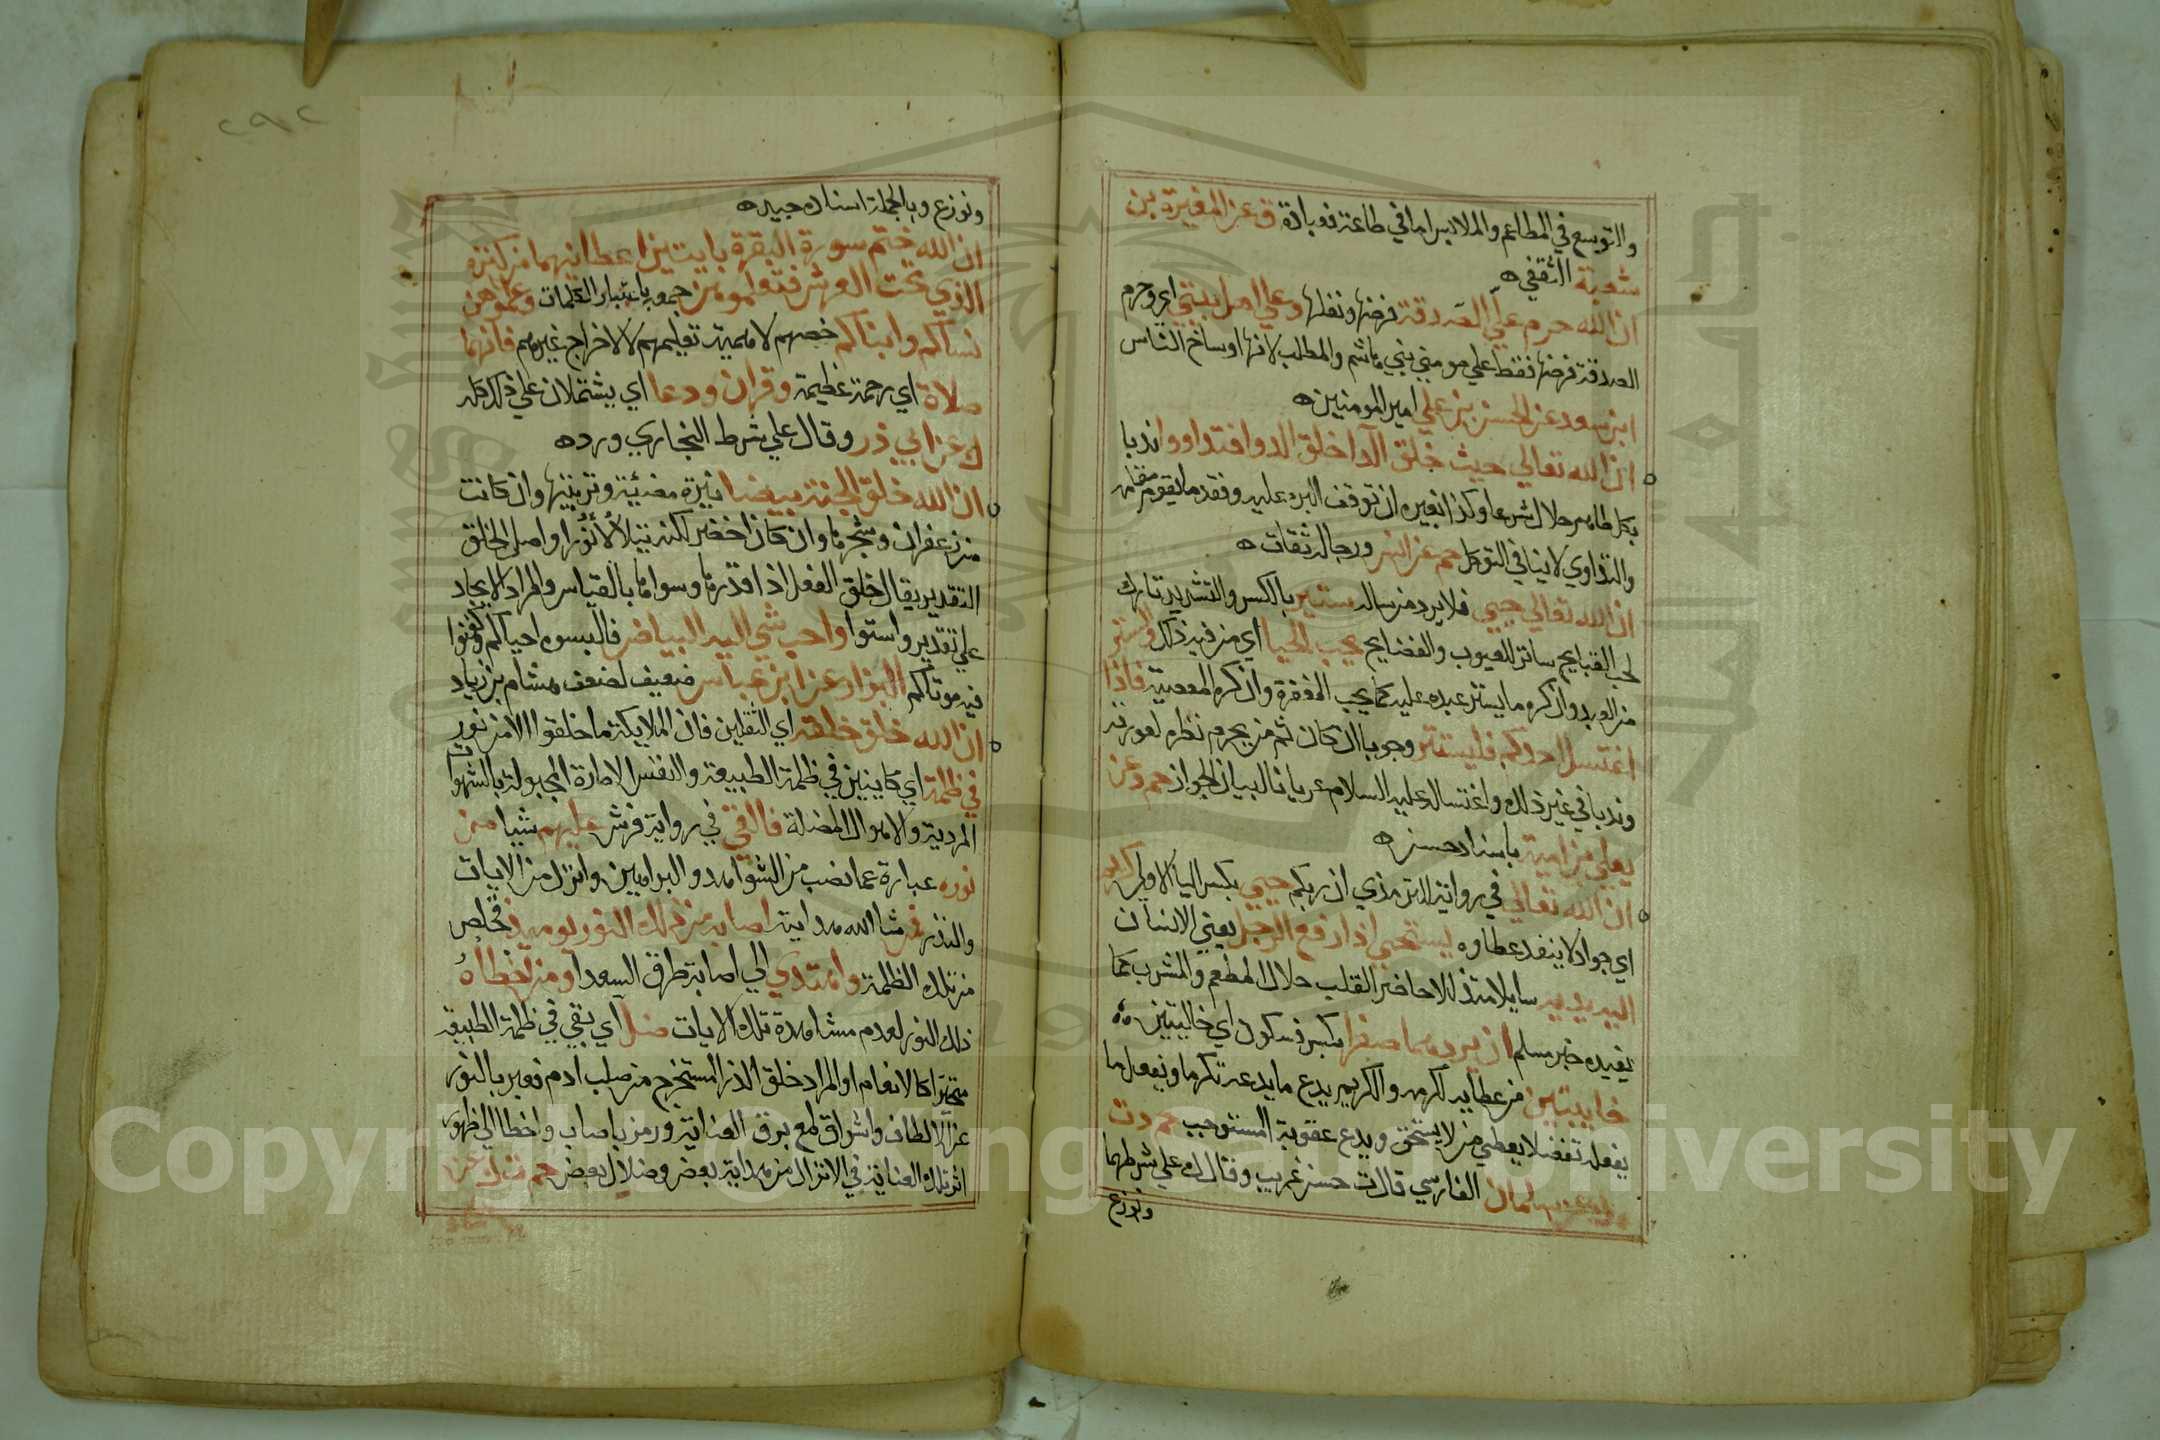 والتوسع في المطاعم والملابس اما في طاعة فعبادة ق عن المغيرة بن
شعبة الثقفي ه
ان الله حرم علي الصدقة فرضها ونفلها وعلي اهل بيتي اي وحرم
الصدقة فرضها فقط علي مومني بني هاشم والمطلب لانها اوساخ الناس
ابن سعد عن الحسن بن علي امير المومنين ه
ان الله تعالي حيث خلق الدا خلق الدوا فتداووا ندبا
بكل طاهر حلال شرعا وكذا بغيره ان توقف البرء عليه وفقد ما يقوم مقامه
والتداوي لا ينافي التوكل حم عن انس ورجاله ثقات ه
ان الله تعالي حيي فلا يرد من ساله ستير بالكسر والتشديد تارك
لحب القبايح ساتر للعيوب والفضايح يحب الحيا اي من فيه ذلك والستر
من العبد وان كره ما يستر عبده عليه كما يحب المغفرة وان كره المعصية فاذا
اغتسل احدكم فليستتر وجوبا ان كان ثم من يحرم نظره لعورته
وندبا في غير ذلك واغتساله عليه السلام عريانا لبيان الجواز حم د ن عن
يعلي بن امية باسناد حسن ه
ان الله تعالي في رواية الترمذي ان ربكم حيي بكسر اليا الاولي كريم
اي جواد لا ينفد عطاوه يستحيي اذا رفع الرجل يعني الانسان
اليه يديه سايلا متذللا حاضر القلب حلال المطعم والمشرب كما
يفيده خبر مسلم ان يردهما صفرا بكسر فسكون اي خاليتين
خايبتين من عطايه لكرمه والكريم يدع ما يدعه تكرما ويفعل ما
يفعله تفضلا يعطي من لا يستحق ويدع عقوبة المستوجب حم د ت
سلمان الفارسي قال ت حسن غريب وقال ك علي شرطهما
ونوزع
ونوزع وبالجملة اسناده جيد ه
ان الله ختم سورة البقرة بايتين اعطانيهما من كنزه
الذي تحت العرش فتعلموهن جمع باعتبار الكلمات وعلموهن
نساكم وابناكم خصهم لاهمية تعليمهم لا لاخراج غيرهم فانهما
صلاة اي رحمة عظيمة وقران ودعا اي يشتملان علي ذلك كله
ك عن ابي ذر وقال علي شرط البخاري ورده
ان الله خلق الجنة بيضا نيرة مضيئة وتربتها وان كانت
من زعفران وشجرها وان كان اخضر لكنه يتلألأ نورا واصل الخلق
التقدير يقال خلق النعل اذا قدرها وسواها بالقياس والمراد الايجاد
علي تقدير واستوا واحب شي اليه البياض فالبسوه احياكم وكفنوا
فيه موتاكم البزار عن ابن عباس ضعيف لضعف هشام بن زياد
ان الله خلق خلقه اي الثقلين فان الملايكة ما خلقوا الا من نور
في ظلمة اي كاينين في ظلمة الطبيعة والنفس الامارة المجبولة بالشهوات
المردية والاموال المضلة فالقي في رواية فرش عليهم شيا من
نوره عبارة عما نصب من الشواهد والبراهين وانزل من الايات
والنذر فمن شا الله هدايته اصابه من ذلك النور يوميذ فخلص
من تلك الظلمة واهتدي الي اصابة طرق السعدا ومن اخطاه
ذلك النور لعدم مشاهدة تلك الايات ضل اي بقي في ظلمة الطبيعة
متحيرا كالانعام او المراد خلق الذر المستخرج من صلب ادم فعبر بالنور
عن الالطاف واشراق لمع برق العناية ورمز باصاب واخطا الي ظهور
اثر تلك العناية في الانزال من هداية بعض وضلال بعض حم ت ك عن